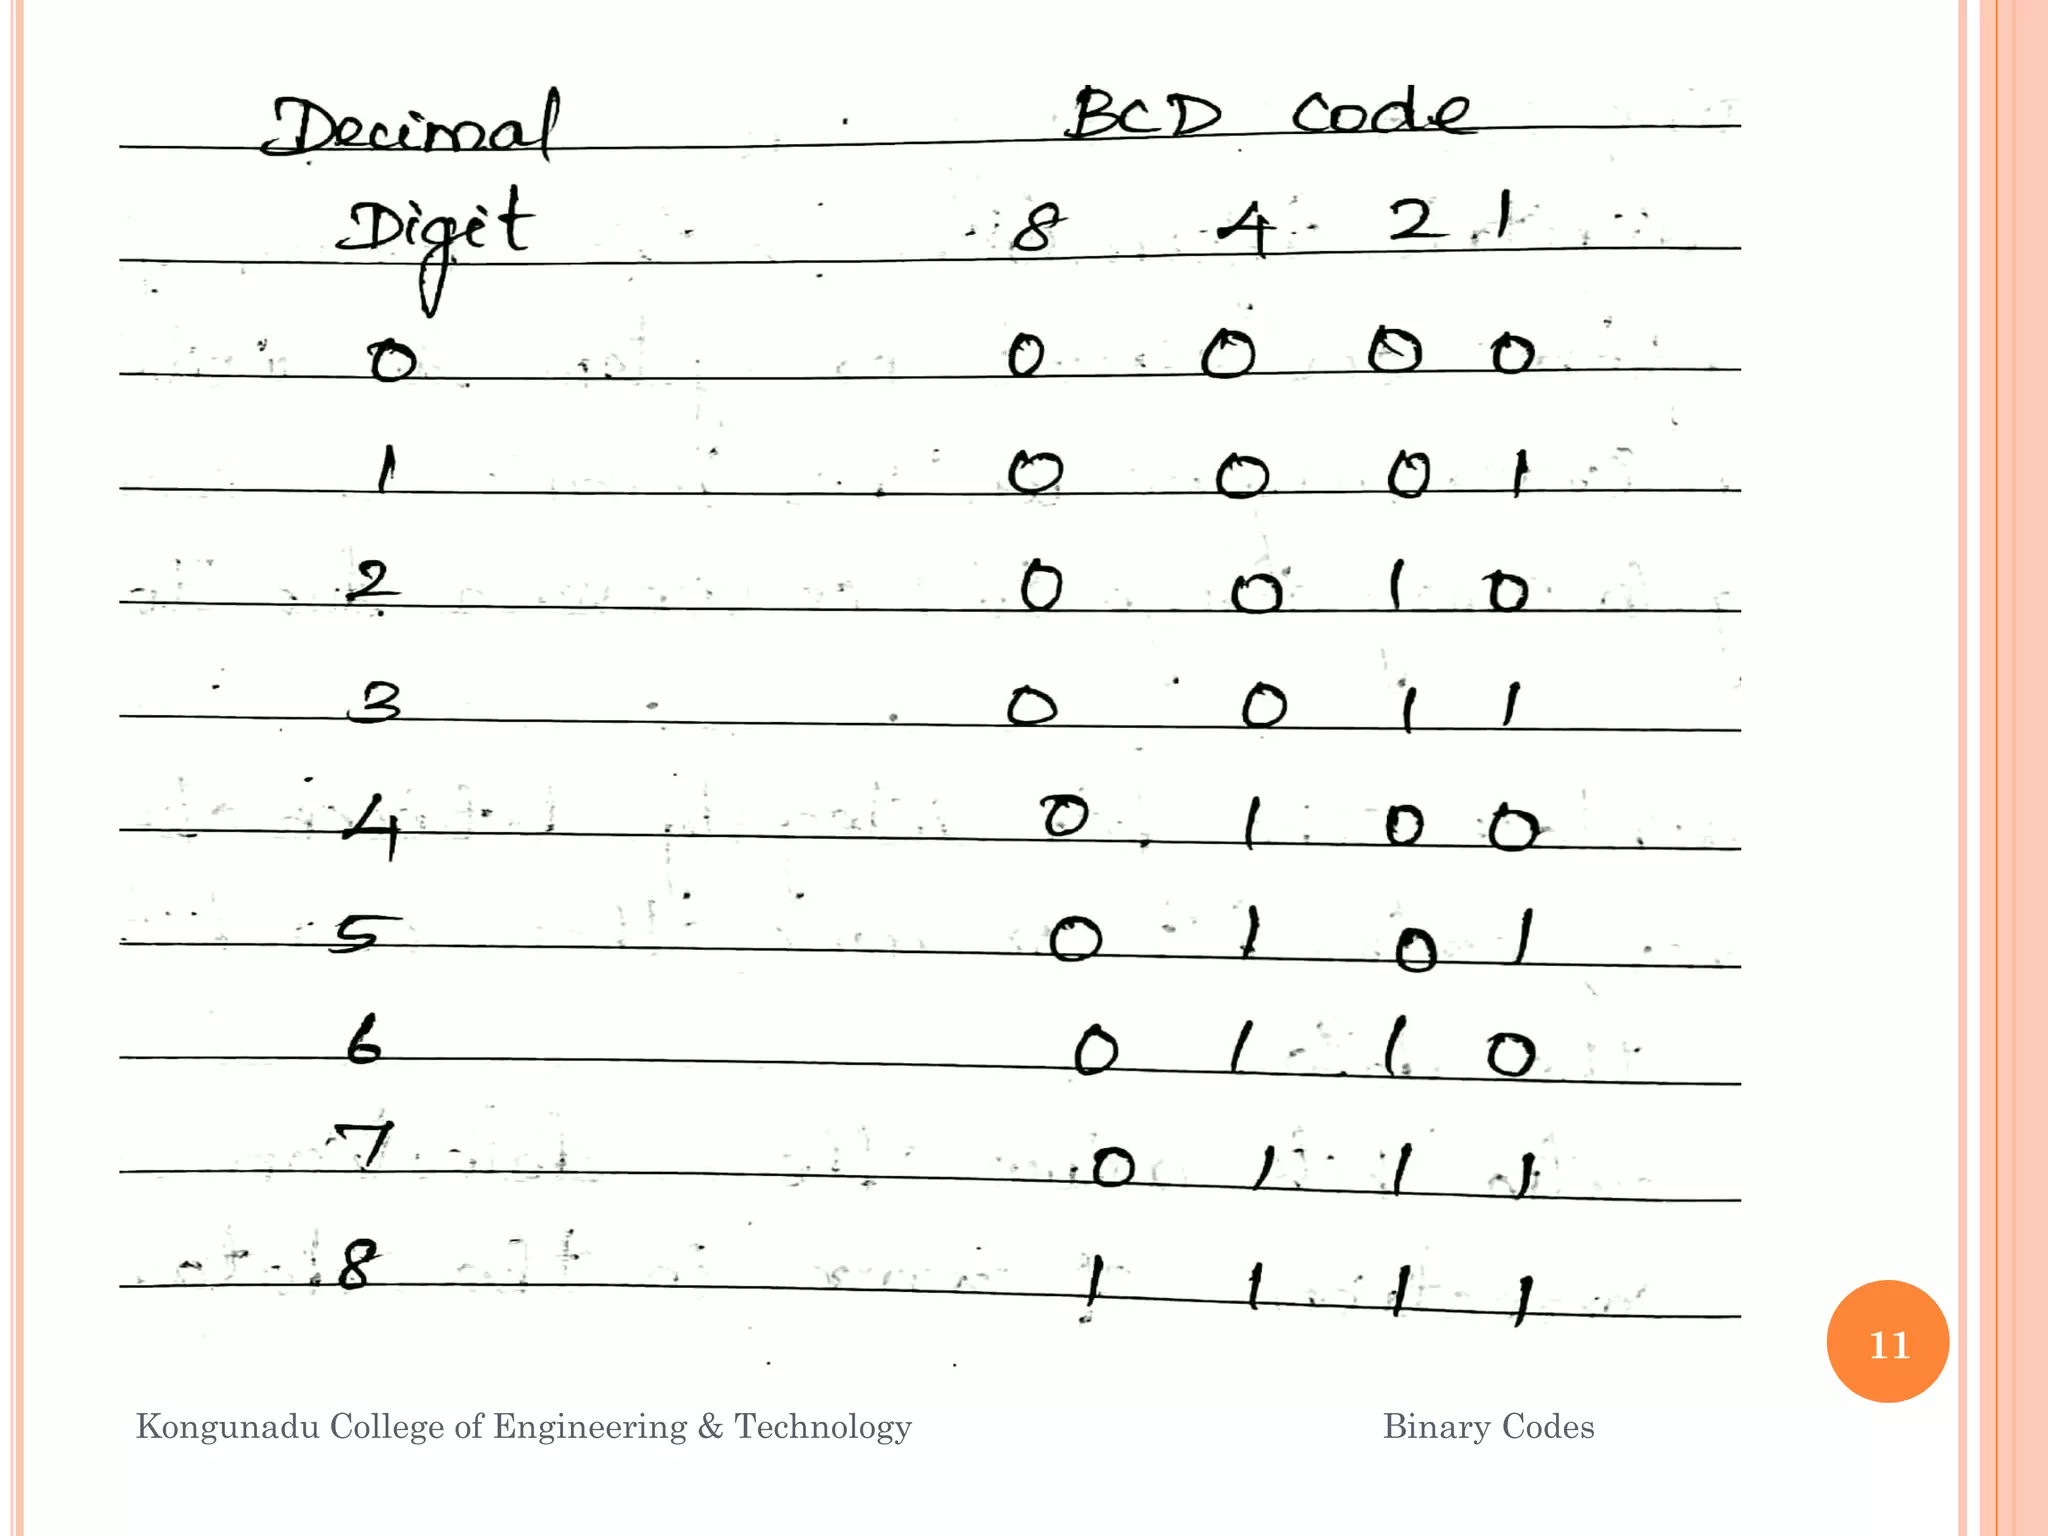 Decimal BCD Code
Digit 8 4 2 1
0 0 0 0 0
1 0 0 0 1
2 0 0 1 0
3 0 0 1 1
4 0 1 0 0
5 0 1 0 1
6 0 1 1 0
7 0 1 1 1
8 1 1 1 1
11
Kongunadu College of Engineering & Technology Binary Codes